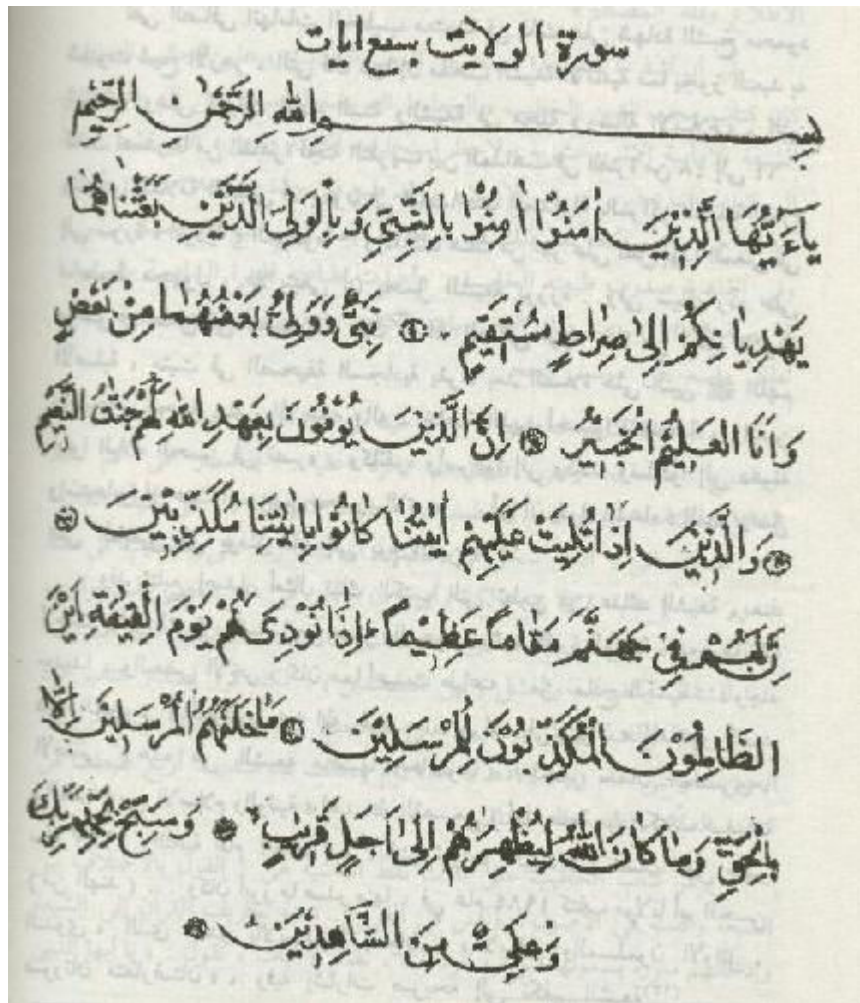 سورة الولايت بسبع ايات
بسم الله الرَّحْمٰنِ الرَّحِيْمِ
يٰاَيُّهَا الَّذِيْنَ اٰمَنُوْا اٰمِنُوْا بِالنَّبِيِّ وَبِالْوَلِيِّ الَّذَيْنِ بَعَثْنَاهُمَا
يَهْدِيَانِكُمْ اِلٰى صِرَاطٍ مُسْتَقِيْمٍ . ۞ نَبِيٌّ وَوَلِيٌّ بَعْضُهُمَا مِنْ بَعْضٍ
وَاَنَا الْعَلِيْمُ الْخَبِيْرُ ۞ اِنَّ الَّذِيْنَ يُوْفُوْنَ بِعَهْدِ اللهِ لَهُمْ جَنّٰتُ النَّعِيْمِ
۞ وَالَّذِيْنَ اِذَا تُلِيَتْ عَلَيْهِمْ اٰيٰتُنَا كَانُوْا بِاٰيٰتِنَا مُكَذِّبِيْنَ ۞
اِنَّ لَهُمْ فِيْ جَهَنَّمَ مَقَامًا عَظِيْمًا اِذَا نُوْدِيَ لَهُمْ يَوْمَ الْقِيٰمَةِ اَيْنَ
الظَّالِمُوْنَ الْمُكَذِّبُوْنَ لِلْمُرْسَلِيْنَ ۞ مَا خَلَفَهُمُ الْمُرْسَلِيْنَ اِلَّا
بِالْحَقِّ وَمَا كَانَ اللهُ لِيُظْهِرَهُمْ اِلٰى اَجَلٍ قَرِيْبٍ ۞ وَسَبِّحْ بِحَمْدِ رَبِّكَ
وَعَلِيٌّ مِنَ الشَّاهِدِيْنَ ۞